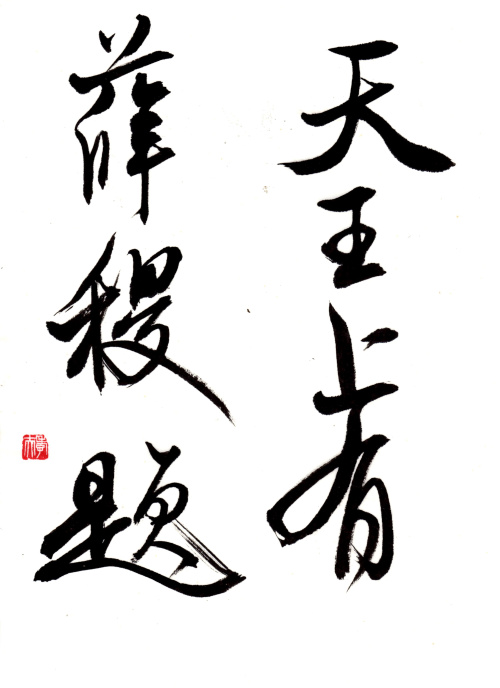 天王上有
薛稷题